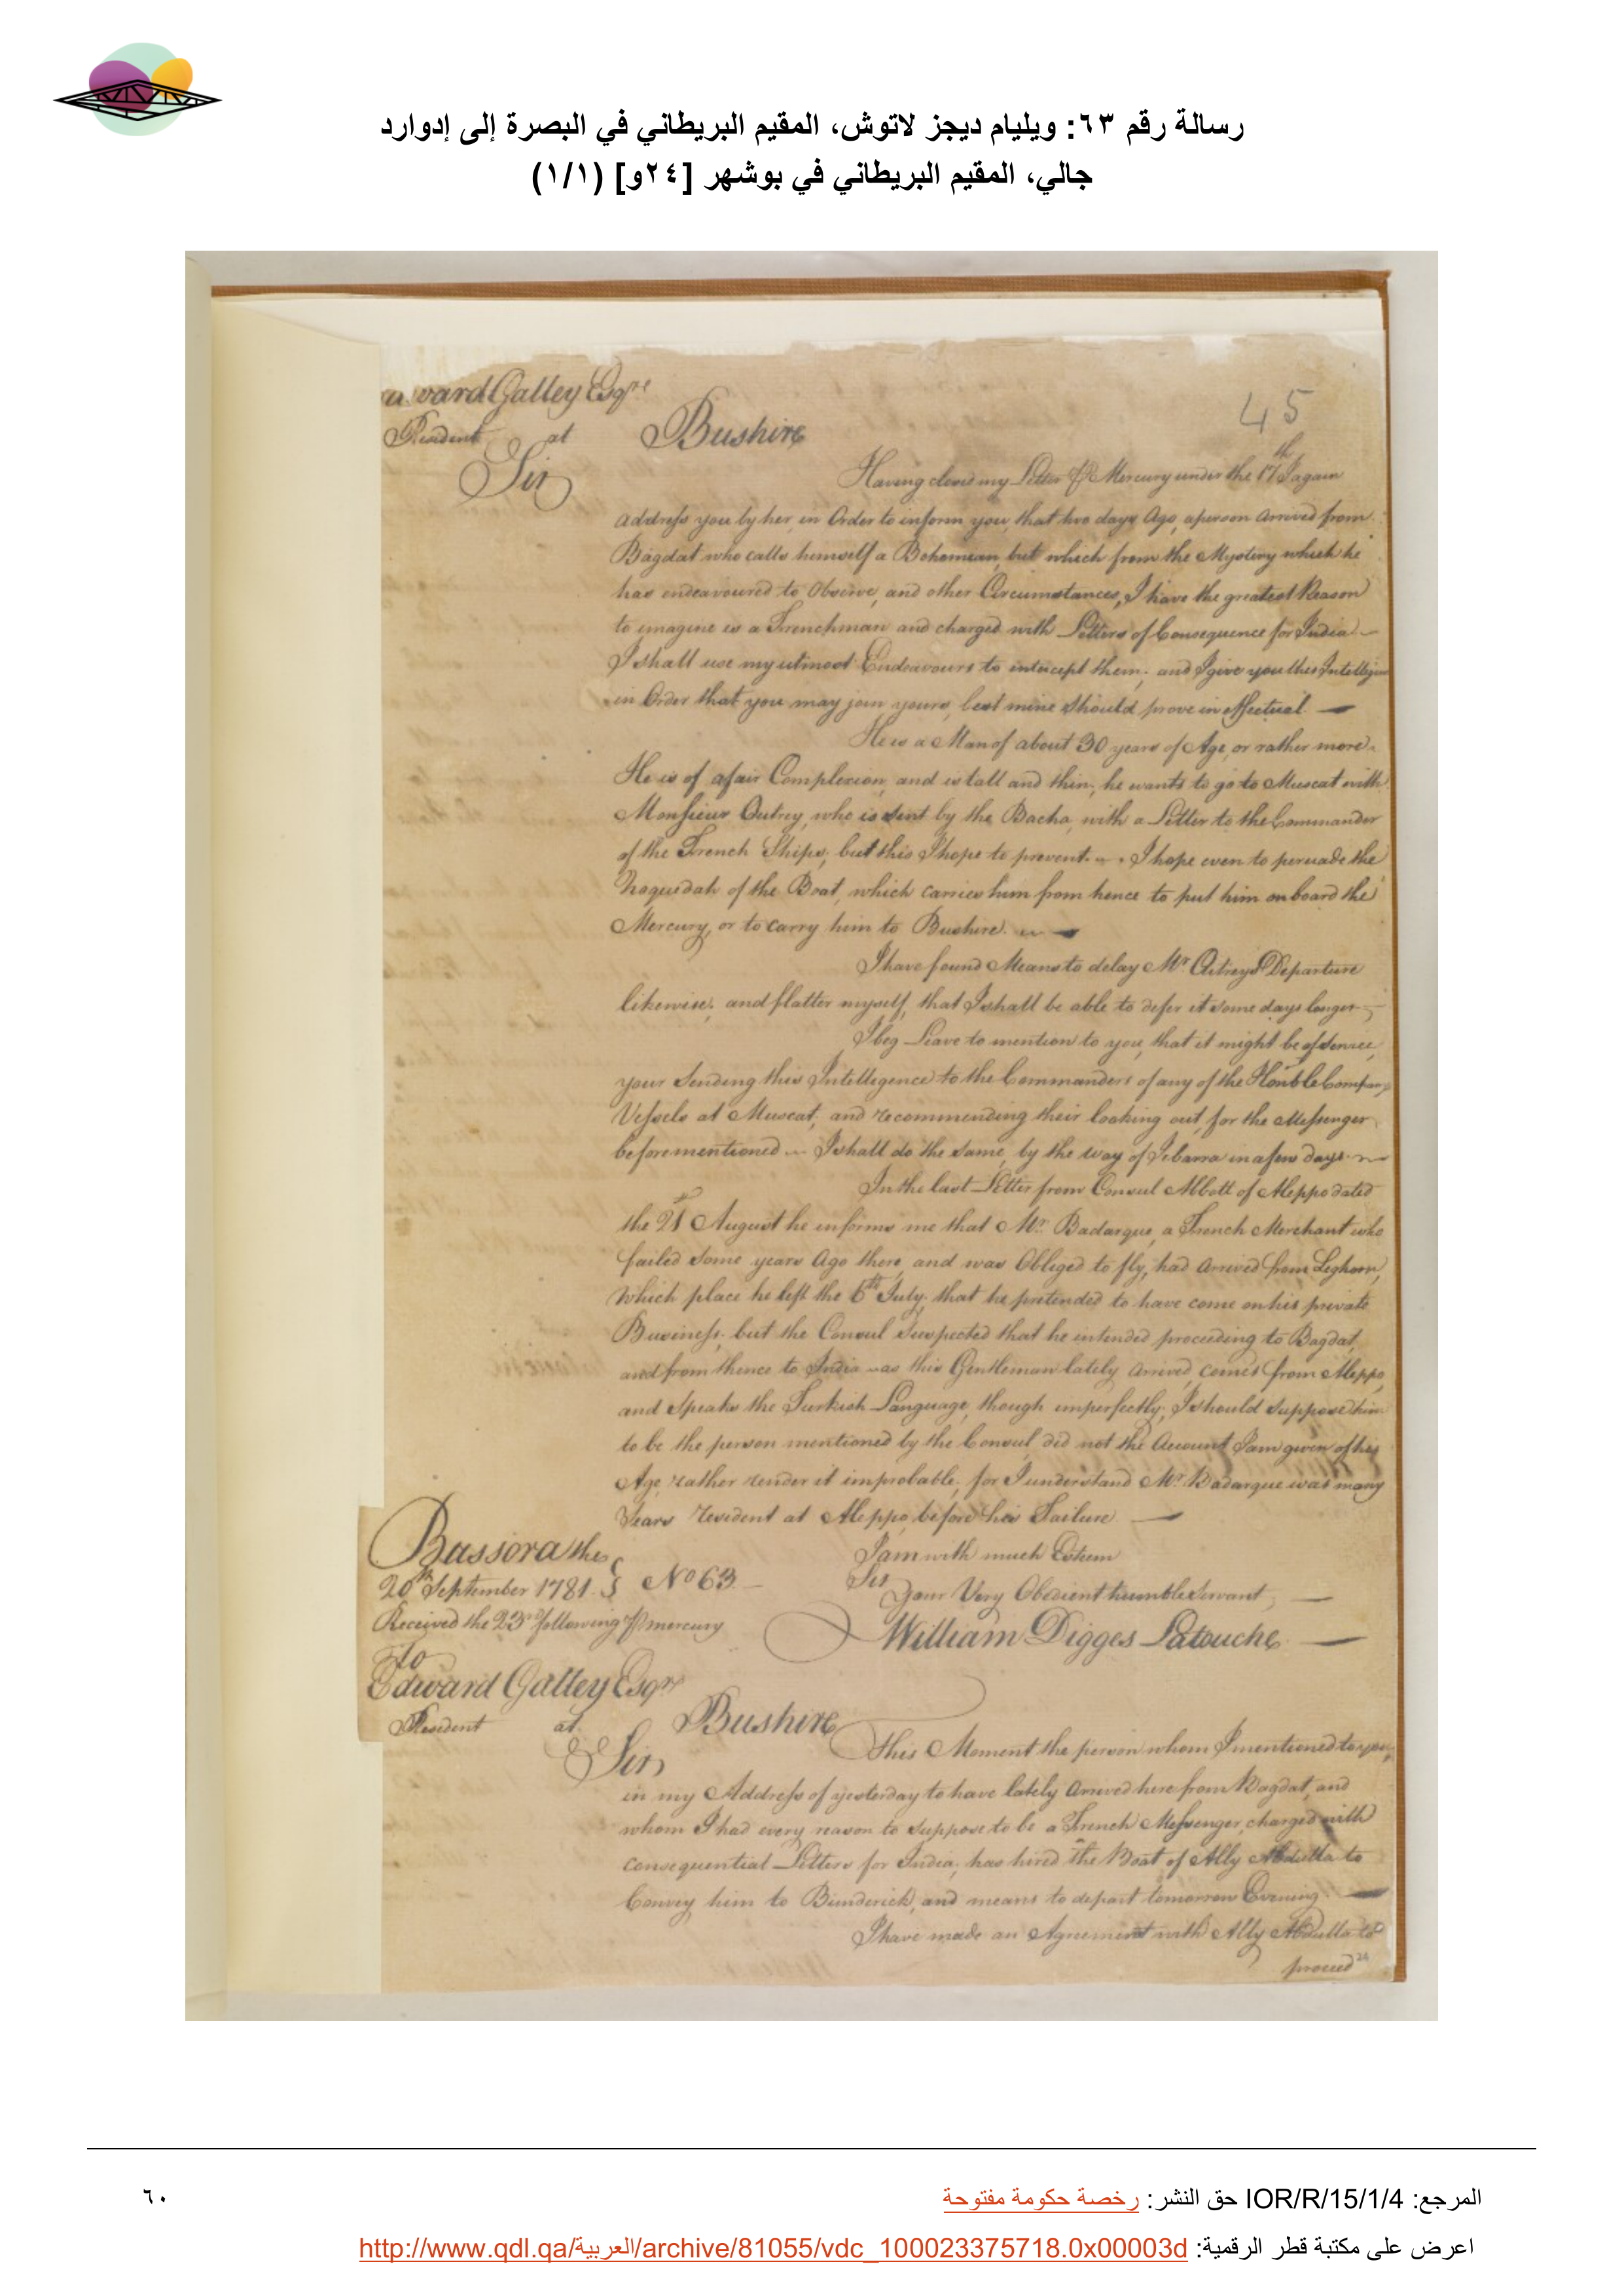 رسالة رقم ٦٣: ويليام ديجز لاتوش، المقيم البريطاني في البصرة إلى إدوارد
جالي، المقيم البريطاني في بوشهر [٢٤و] (١/١)
45
ward Galley Esqre
Resident at Bushire
Sir
Having closed my Letter Mercury under the 17th I again
address you by her, in Order to inform you, that two days Ago, a person arrived from
Bagdat who calls himself a Bohemian, but which from the Mystery which he
has endeavoured to Observe, and other Circumstances, I have the greatest Reason
to imagine is a Frenchman and charged with Letters of Consequence for India —
I shall use my utmost Endeavours to intercept them; and I give you this Intelligen
in Order that you may join yours, lest mine should prove ineffectual. —
He is a Man of about 30 years of Age, or rather more.
He is of a fair Complexion, and is tall and thin; he wants to go to Muscat with
Monsieur Outrey, who is sent by the Bacha, with a Letter to the Commander
of the French Ships; but this I hope to prevent. — I hope even to persuade the
Noquedah of the Boat, which carries him from hence to put him on board the
Mercury, or to carry him to Bushire. —
I have found Means to delay Mr. Outreys Departure
likewise; and flatter myself, that I shall be able to defer it some days longer —
I beg Leave to mention to you, that it might be of service,
your sending this Intelligence to the Commanders of any of the Honble Company
Vessels at Muscat, and recommending their looking out, for the Messenger
beforementioned — I shall do the same, by the way of Zebarra in a few days. —
In the last Letter from Consul Abbott of Aleppo dated
the 21st August he informs me that Mr. Badarque, a French Merchant who
failed some years Ago there, and was Obliged to fly, had arrived from Leghorn,
Which place he left the 6th July; that he pretended to have come on his private
Business; but the Consul suspected that he intended proceeding to Bagdat,
and from thence to India — as this Gentleman lately arrived, comes from Aleppo,
and speaks the Turkish Language, though imperfectly; I should suppose him
to be the person mentioned by the Consul, did not the Account I am given of his
Age, rather render it improbable; for I understand Mr. Badarque was many
Years resident at Aleppo, before his Failure —
Bassora the
20th September 1781. No 63 —
Received the 23rd following mercury
I am with much Esteem
Sir
Your Very Obedient humble Servant, —
William Digges Latouche —
To
Edward Galley Esqre
Resident at Bushire
Sir
This Moment the person whom I mentioned to you,
in my Address of yesterday to have lately arrived here from Bagdat, and
whom I had every reason to suppose to be a French Messenger, charged with
consequential Letters for India; has hired the Boat of Ally Abdulla to
Convey him to Bunderick, and means to depart tomorrow Evening —
I have made an Agreement with Ally Abdulla to
proceed
24
المرجع: IOR/R/15/1/4 حق النشر: رخصة حكومة مفتوحة
٦٠
اعرض على مكتبة قطر الرقمية: http://www.qdl.qa/العربية/archive/81055/vdc_100023375718.0x00003d